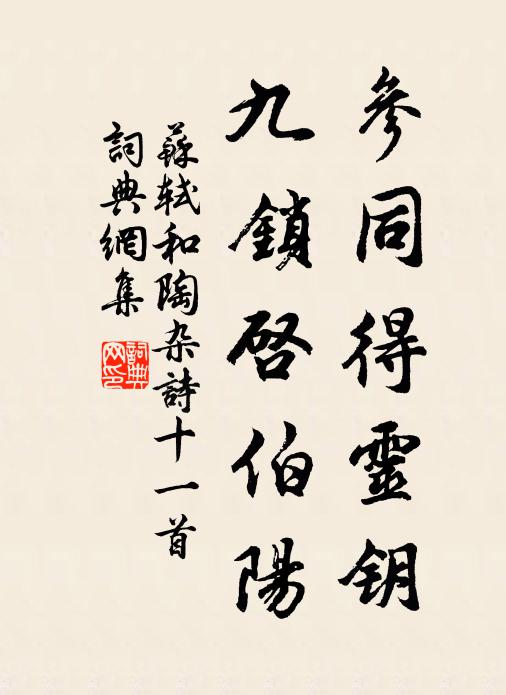 參同得靈鑰
九鎖啓伯陽
蘇軾和陶杂詩十一首
詞典網集
詞典
网印